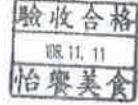 驗收合格
108. 11. 11
怡饗美食